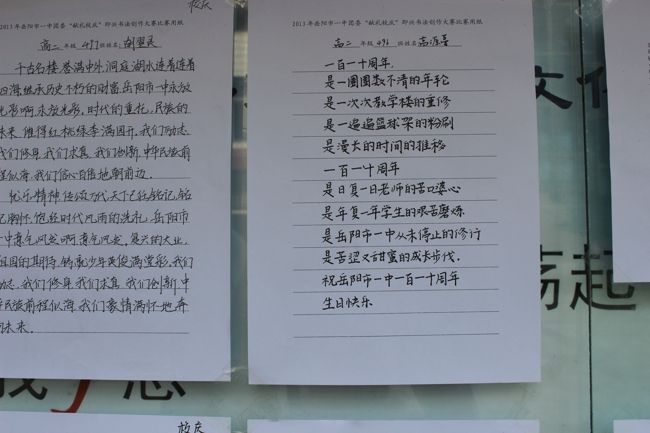 校庆
2013年岳阳市一中团委“献礼校庆”即兴书法创作大赛比赛用纸
高二 年级 477 班姓名:
千古名楼,誉满中外,洞庭湖水连着
四海,继承历史不朽的财富,岳阳市一中永放
光彩啊永放光彩,时代的重托,民族的
未来,催得红桃绿李满园开,我们励志,
我们修身,我们求真,我们创新,中华民族前
程似海,我们信心百倍地朝前迈.
忧乐精神传颂万代,天下己任铭记
胸怀,饱经时代风雨的洗礼,岳阳市
一中遵气风发啊遵气风发,复兴的大业,
祖国的期待,铸就少年英俊满堂彩,我们
励志,我们修身,我们求真,我们创新,中
华民族前程似海,我们豪情满怀地奔
向未来.
2013年岳阳市一中团委“献礼校庆”即兴书法创作大赛比赛用纸
高二 年级 496 班姓名:
一百一十周年,
是一圈圈数不清的年轮
是一次次教学楼的重修
是一遍遍篮球架的粉刷
是漫长的时间的推移
一百一十周年
是日复一日老师的苦口婆心
是年复一年学生的艰苦磨炼
是岳阳市一中从未停止的修行
是苦涩又甜蜜的成长步伐.
祝岳阳市一中一百一十周年
生日快乐
文化
荡起
校庆